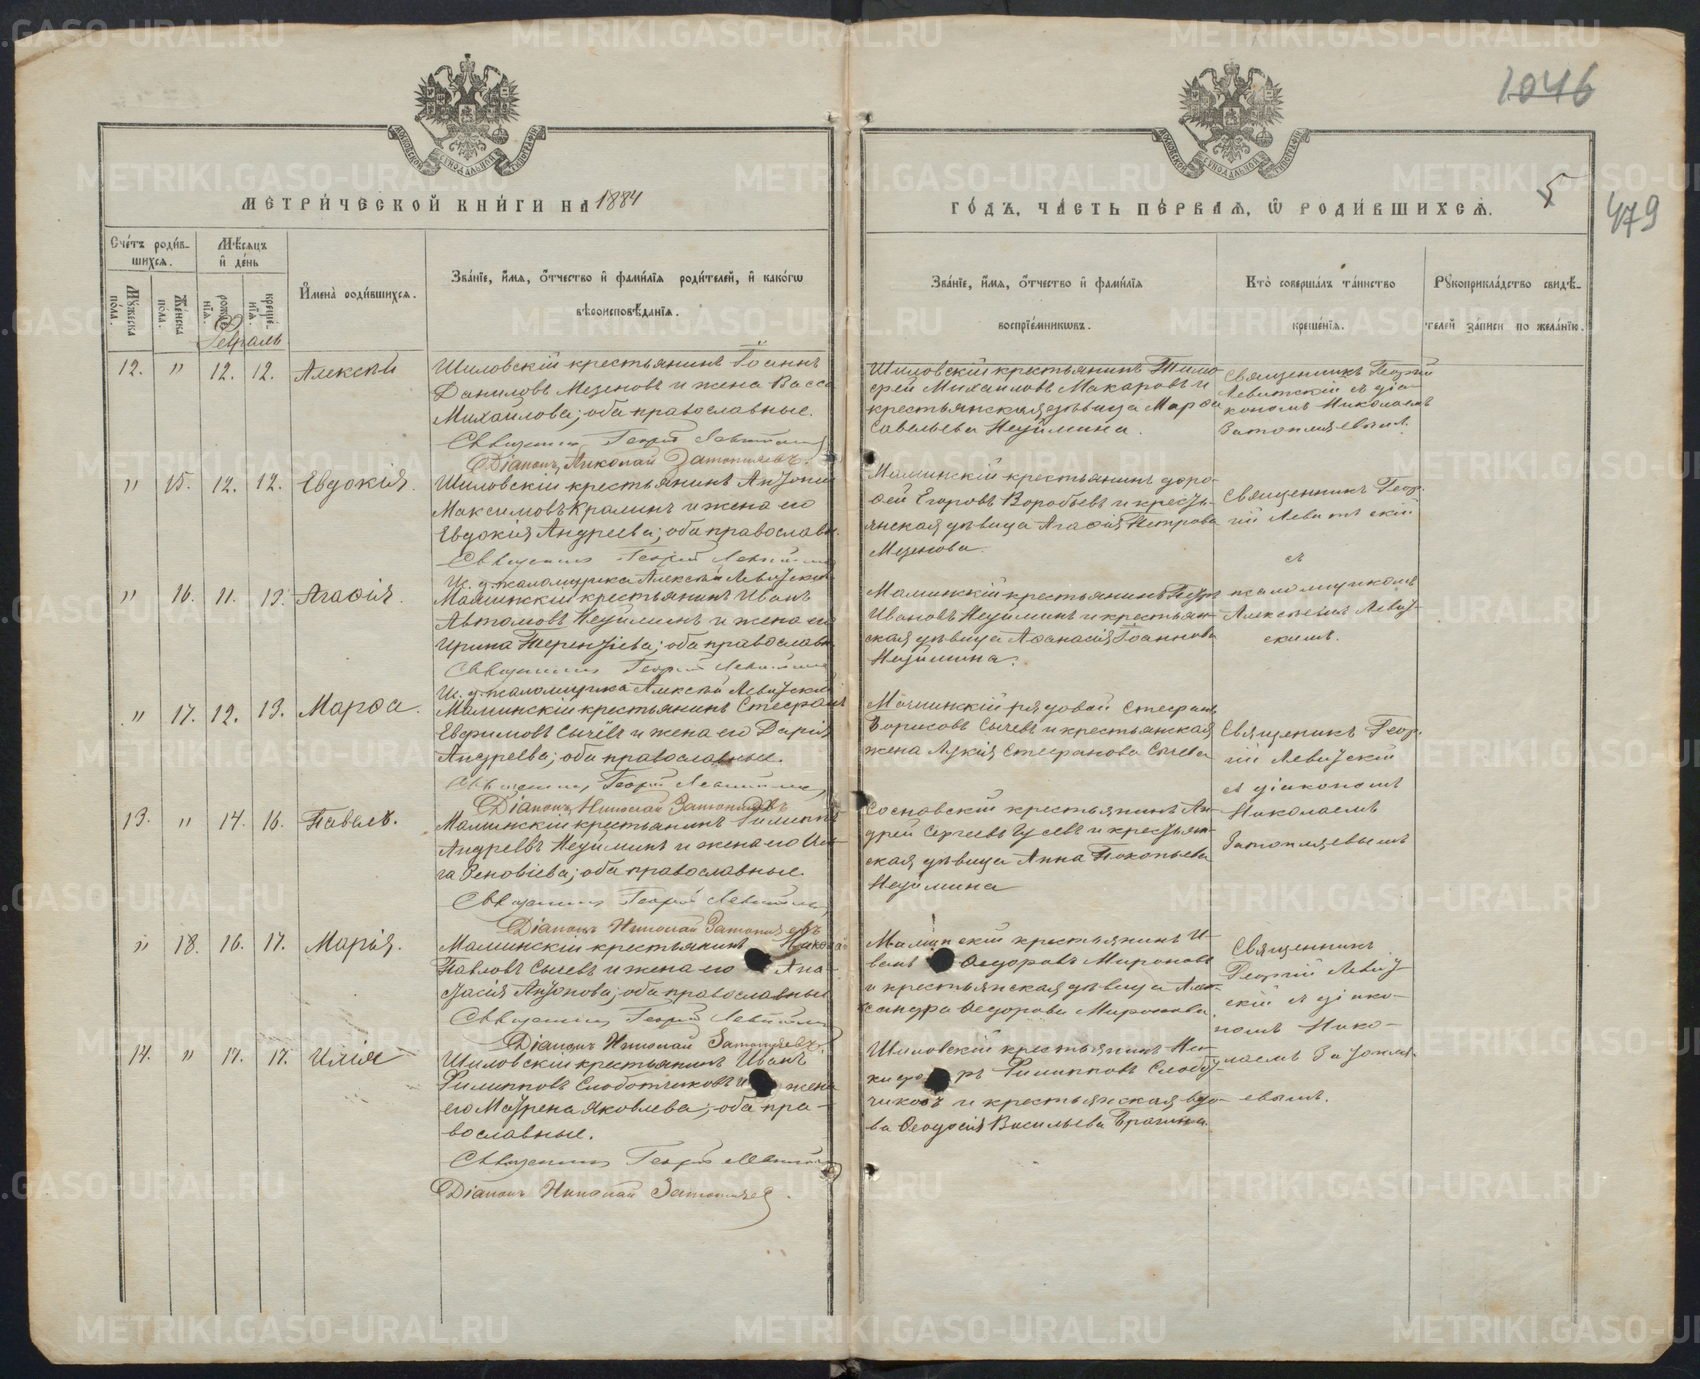 1046
5
479
МЕТРИ́ЧЕСКОЙ КНИ́ГИ НА 1884
ГО́ДЪ, ЧА́СТЬ ПЕ́РВАѦ, Ѽ РОДИ́ВШИХСѦ.
Сче́тъ роди́в-
шихсѧ.
Мѣ́сѧцъ
и҆ де́нь
Мꙋ́жеска
по́ла.
Же́нска
по́ла.
рожде́
нїѧ.
креще́
нїѧ.
И҆мена̀ роди́вшихсѧ.
Зва́нїе, и҆́мѧ, ѻ҆́тчество и҆ фами́лїѧ роди́телей, и҆ како́гѡ
вѣроисповѣ́данїѧ.
Зва́нїе, и҆́мѧ, ѻ҆́тчество и҆ фами́лїѧ
воспрїе́мникѡвъ.
Кто̀ соверша́лъ та́инство
креще́нїѧ.
Рꙋкоприкла́дство свидѣ́-
телей за́писи по жела́нїю.
Февраль
12. " 12. 12. Алексѣй
Шиловскій крестьянинъ Іоаннъ
Даниловъ Мезеновъ и жена Васса
Михайлова; оба православные.
Священникъ Георгій Левитскій
Діаконъ Николай Затопляевъ.
Шиловскій крестьянинъ Тимо-
фей Михаиловъ Макаровъ и
крестьянская дѣвица Марфа
Савельева Неуймина.
Священникъ Георгій
Левитскій съ діа-
кономъ Николаемъ
Затопляевымъ.
" 15. 12. 12. Евдокія.
Шиловскій крестьянинъ Антоній
Максимовъ Краминъ и жена его
Евдокія Андреева; оба православн.
Священникъ Георгій Левитскій
И. д. псаломщика Алексѣй Левитскій
Маминскій крестьянинъ Доро-
фей Егоровъ Воробьевъ и кресть-
янская дѣвица Агафія Петрова
Мезенова.
Священникъ Геор-
гій Левитскій
съ
псаломщикомъ
Алексѣемъ Левит-
скимъ.
" 16. 11. 13. Агафія.
Маминскій крестьянинъ Иванъ
Автомовъ Неуйминъ и жена его
Ирина Терентіева; оба православн
Священникъ Георгій Левитскій
И. д. псаломщика Алексѣй Левитскій
Маминскій крестьянинъ Петръ
Ивановъ Неуйминъ и крестьян-
ская дѣвица Афанасія Іоаннова
Неуймина.
" 17. 12. 13. Марфа.
Маминскій крестьянинъ Стефанъ
Евфимовъ Сычевъ и жена его Дарія
Андреева; оба православные.
Священникъ Георгій Левитскій
Діаконъ Николай Затопляевъ
Маминскій рядовой Стефанъ
Борисовъ Сычевъ и крестьянская
жена Лукія Стефанова Сычева
Священникъ Геор-
гій Левитскій
съ діакономъ
Николаемъ
Затопляевымъ
13. " 14. 16. Павелъ.
Маминскій крестьянинъ Филиппъ
Андреевъ Неуйминъ и жена его
Зеновіева; оба православные.
Священникъ Георгій Левитскій
Діаконъ Николай Затопляевъ
Сосновскій крестьянинъ Ан-
дрей Сергеевъ Гусевъ и крестьян-
ская дѣвица Анна Прокопьева
Неуймина
" 18. 16. 17. Марія.
Маминскій крестьянинъ Никола
Павловъ Сычевъ и жена его Ана-
стасія Антонова; оба православные
Священникъ Георгій Левитскій
Діаконъ Николай Затопляевъ
Маминскій крестьянинъ И-
ванъ Ѳедоровъ Мироновъ
и крестьянская дѣвица Алек-
сандра Ѳедорова Миронова.
Священникъ
Георгій Левит-
скій съ діако-
номъ Нико-
лаемъ Затопля-
евымъ.
14. " 17. 17. Илія
Шиловскій крестьянинъ Иванъ
Филипповъ Слоботчиковъ и жена
его Матрена Яковлева; оба пра-
вославные.
Священникъ Георгій Левитскій
Діаконъ Николай Затопляевъ.
Шиловскій крестьянинъ Ни-
кифоръ Филипповъ Слобот-
чиковъ и крестьянская вдо-
ва Ѳеодосія Васильева Брагина.